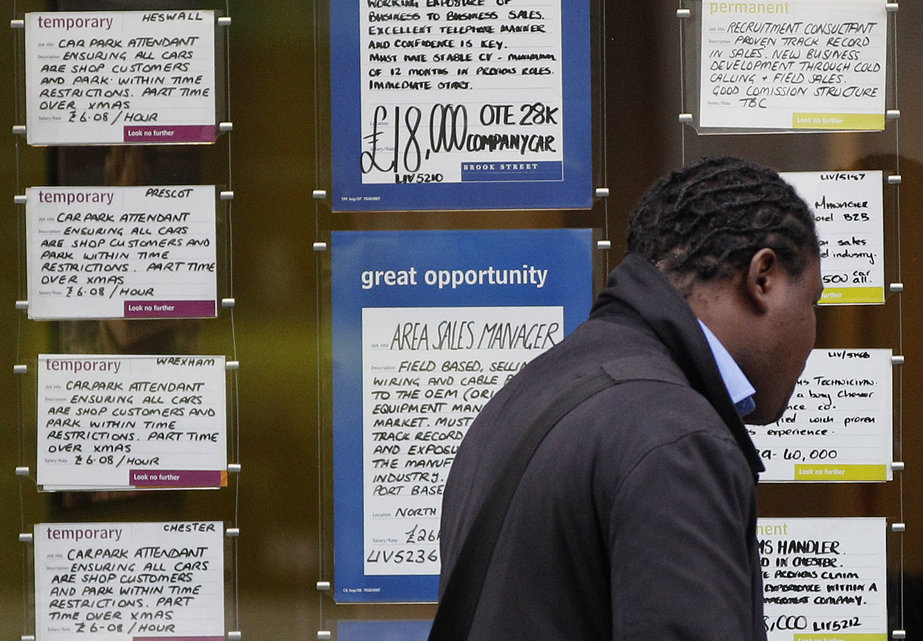 temporary HESWALL
Job title CAR PARK ATTENDANT
Description ENSURING ALL CARS
ARE SHOP CUSTOMERS
AND PARK WITHIN TIME
RESTRICTIONS. PART TIME
OVER XMAS
Salary/Rate £6.08/HOUR
Look no further
temporary PRESCOT
Job title CAR PARK ATTENDANT
Description ENSURING ALL CARS
ARE SHOP CUSTOMERS AND
PARK WITHIN TIME
RESTRICTIONS. PART TIME
OVER XMAS
Salary/Rate £6.08/HOUR
Look no further
temporary WREXHAM
Job title CARPARK ATTENDANT
Description ENSURING ALL CARS
ARE SHOP CUSTOMERS AND
PARK WITHIN TIME
RESTRICTIONS. PART TIME
OVER XMAS
Salary/Rate £6.08/HOUR
Look no further
temporary CHESTER
Job title CARPARK ATTENDANT
Description ENSURING ALL CARS
ARE SHOP CUSTOMERS
AND PARK WITHIN TIME
RESTRICTIONS. PART
TIME OVER XMAS
Salary/Rate £6.08/HOUR
WORKING EXPOSURE OF
BUSINESS TO BUSINESS SALES.
EXCELLENT TELEPHONE MANNER
AND CONFIDENCE IS KEY.
MUST HAVE STABLE CV - MINIMUM
OF 12 MONTHS IN PREVIOUS ROLES.
IMMEDIATE START.
Location
Salary/Rate £18,000 OTE 28K
COMPANY CAR
LIV5210
BROOK STREET
great opportunity
Job title AREA SALES MANAGER
Description FIELD BASED, SELLIN
WIRING AND CABLE
TO THE OEM (ORI
EQUIPMENT MAN
MARKET. MUST
TRACK RECORD
AND EXPOSU
THE MANUF
INDUSTRY.
PORT BASE
Location NORTH
Salary £26
LIV5236
permanent
Job title RECRUITMENT CONSULTANT
Description PROVEN TRACK RECORD
IN SALES. NEW BUSINESS
DEVELOPMENT THROUGH COLD
CALLING + FIELD SALES.
GOOD COMISSION STRUCTURE
Salary/Rate TBC
Look no further
LIV/5167
MANAGER
B2B
sales
d industry.
500 car all.
Look no further
LIV/5166
TECHNICIAN.
a busy Chester
nce co.
fied with proven
experience.
- 40,000
Look no further
nent
MS HANDLER.
D IN CHESTER.
PREVIOUS CLAIM
EXPERIENCE WITHIN A
COMPANY.
8,000 LIV5212
Look no further